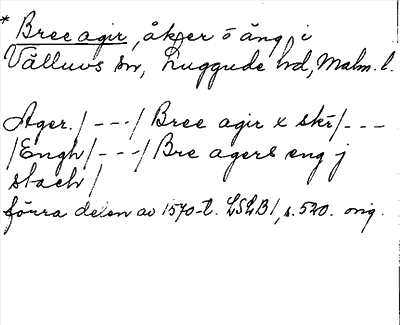 * Bree agir, åker o äng i
Välluvs sn, Luggude hd, Malm. l.
Ager. / - - - / Bree agir x skr / - - -
/ Engh / - - - / Bre agers eng j
stach /
förra delen av 1570-t. LSLB 1, s. 520. orig.